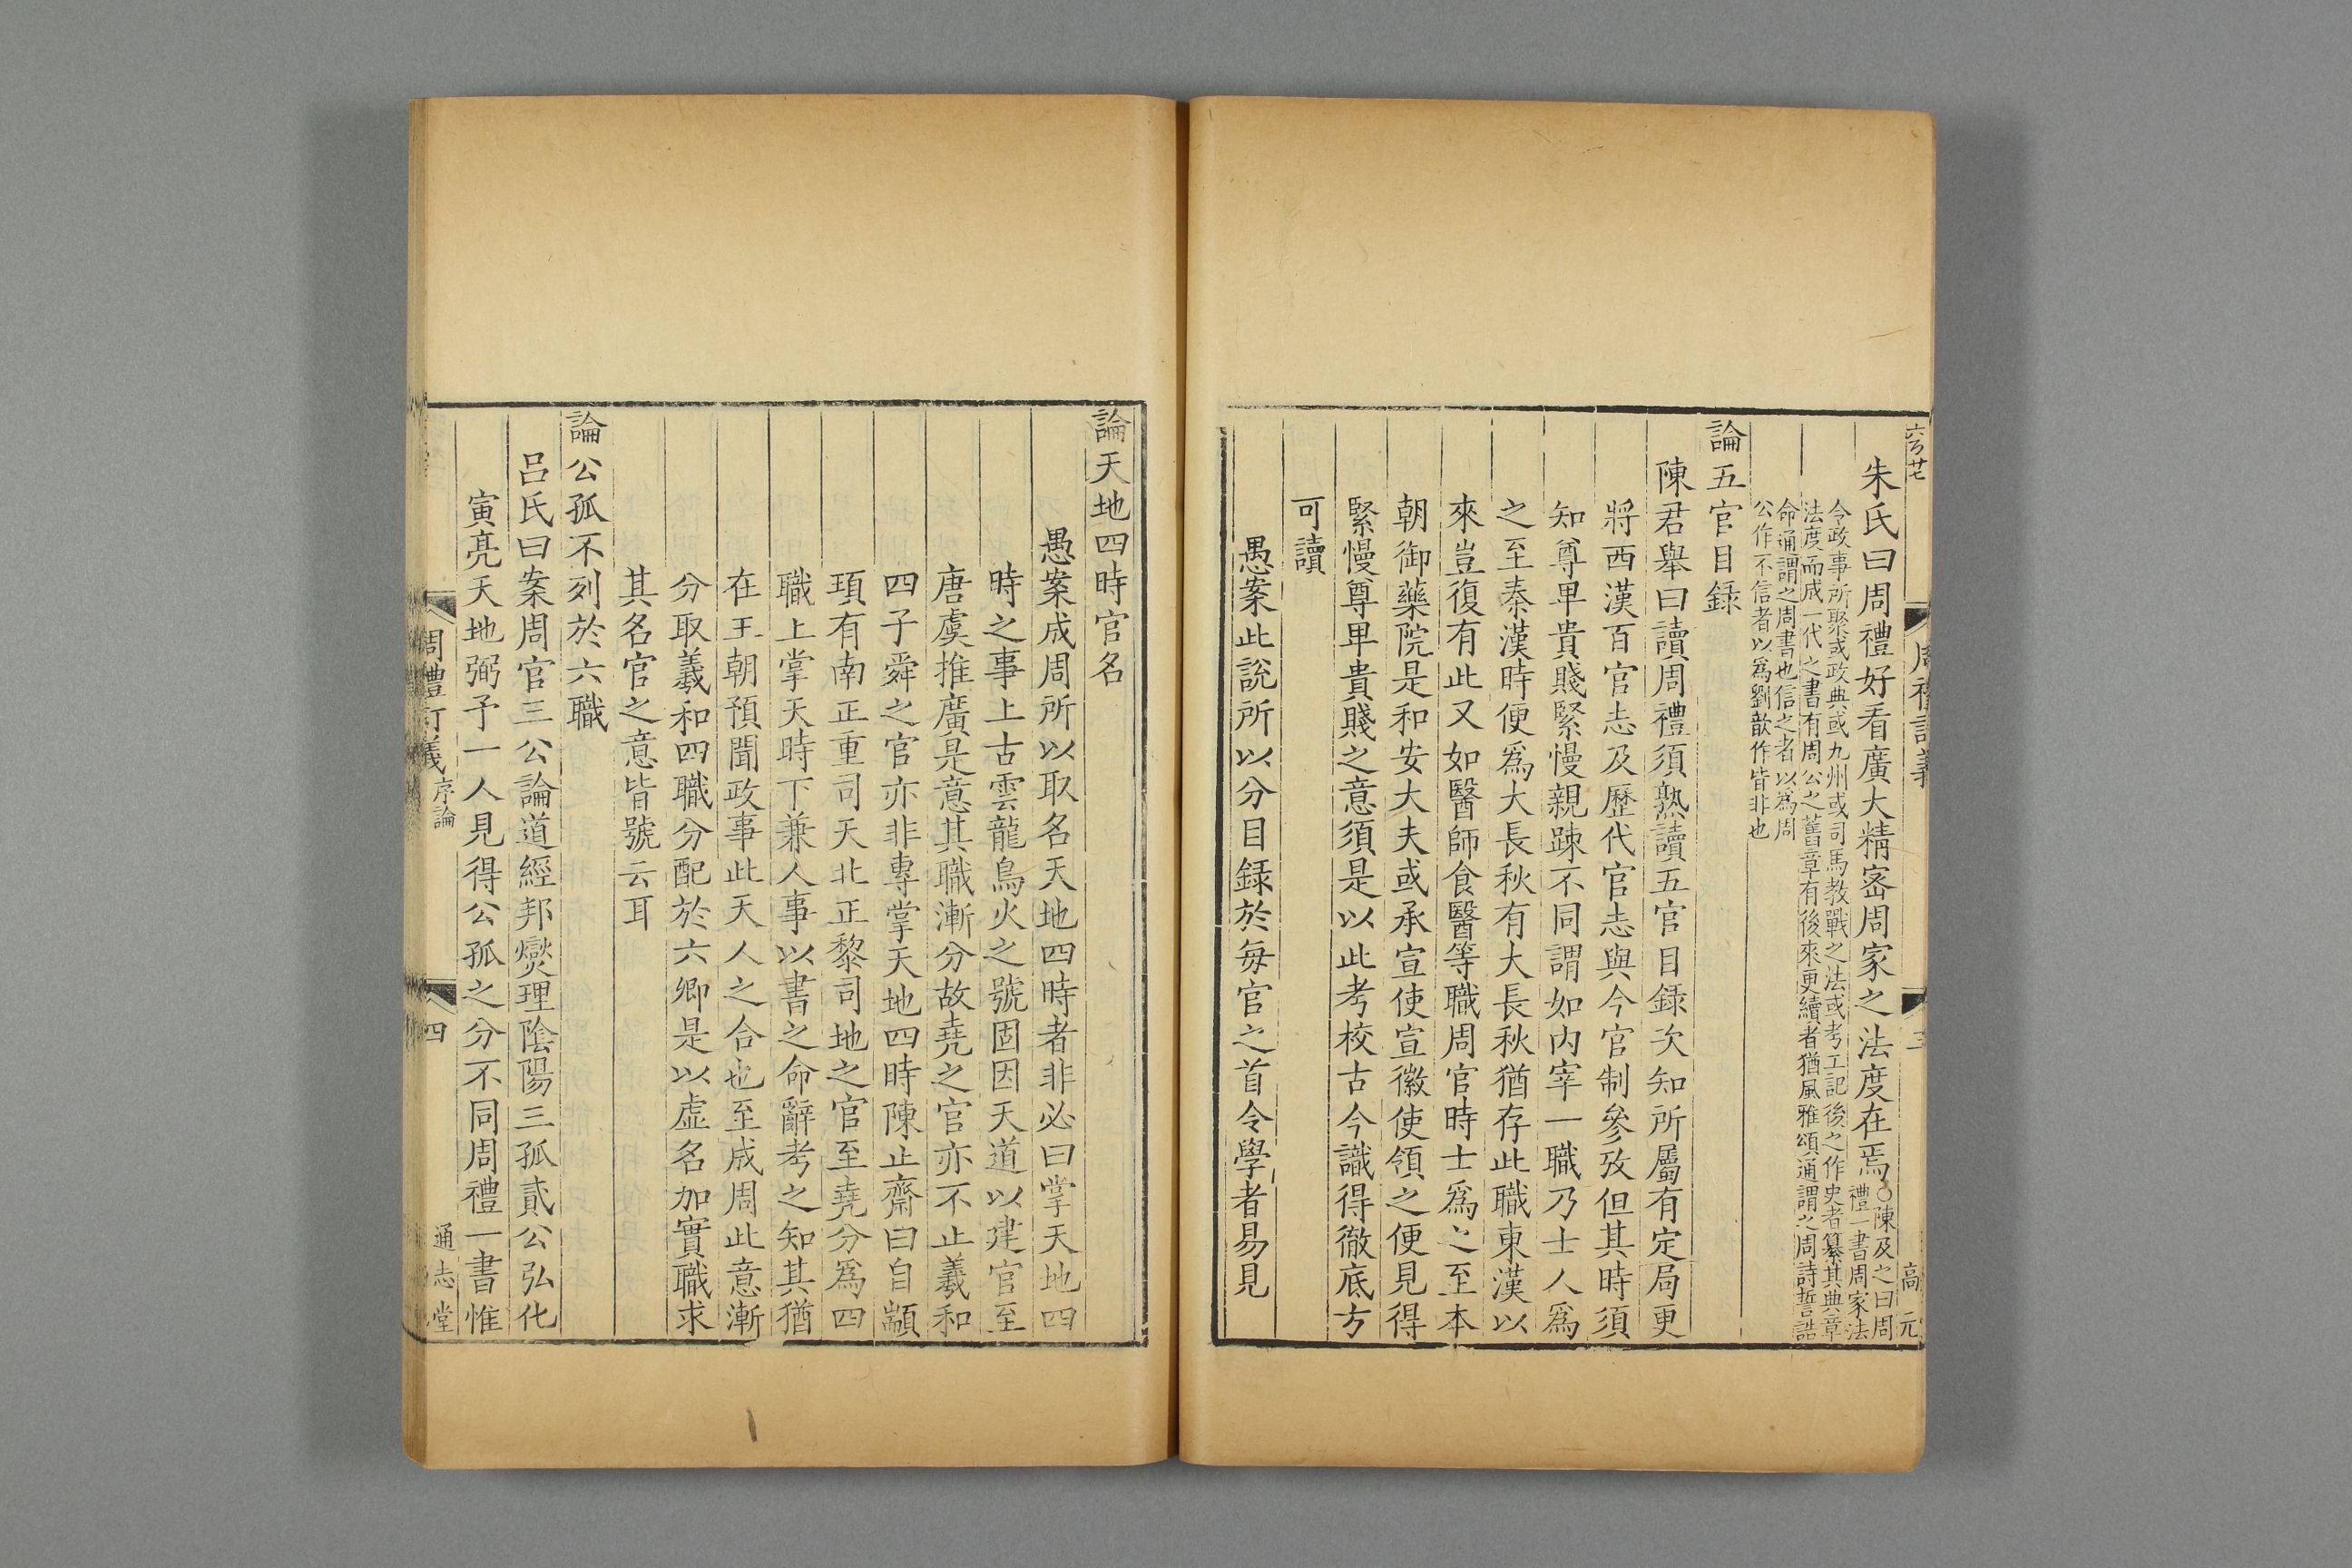 朱氏曰周禮好看廣大精宻周家之法度在焉○陳及之曰周
禮一書周家法
令政事所聚或政典或九州或司馬教戰之法或考工記後之作史者纂其典章
法度而成一代之書有周公之舊章有後來更續者猶風雅頌通謂之周詩誓誥
命通謂之周書也信之者以爲周
公作不信者以爲劉歆作皆非也
論五官目録
陳君舉曰讀周禮須熟讀五官目録次知所屬有定局更
將西漢百官志及歷代官志與今官制參攷但其時須
知尊卑貴賤緊慢親踈不同謂如内宰一職乃士人爲
之至秦漢時便爲大長秋有大長秋猶存此職東漢以
來豈復有此又如醫師食醫等職周官時士爲之至本
朝御藥院是和安大夫或承宣使宣徽使領之便見得
緊慢尊卑貴賤之意須是以此考校古今識得徹底方
可讀
愚案此説所以分目録於每官之首令學者易見
高元
論天地四時官名
愚案成周所以取名天地四時者非必曰掌天地四
時之事上古雲龍鳥火之號固因天道以建官至
唐虞推廣是意其職漸分故堯之官亦不止羲和
四子舜之官亦非專掌天地四時陳止齋曰自顓
頊有南正重司天北正黎司地之官至堯分爲四
職上掌天時下兼人事以書之命辭考之知其猶
在王朝預聞政事此天人之合也至成周此意漸
分取羲和四職分配於六卿是以虚名加實職求
其名官之意皆號云耳
論公孤不列於六職
吕氏曰案周官三公論道經邦燮理陰陽三孤貳公弘化
寅亮天地弼予一人見得公孤之分不同周禮一書惟
周禮訂義 序論 四 通志堂